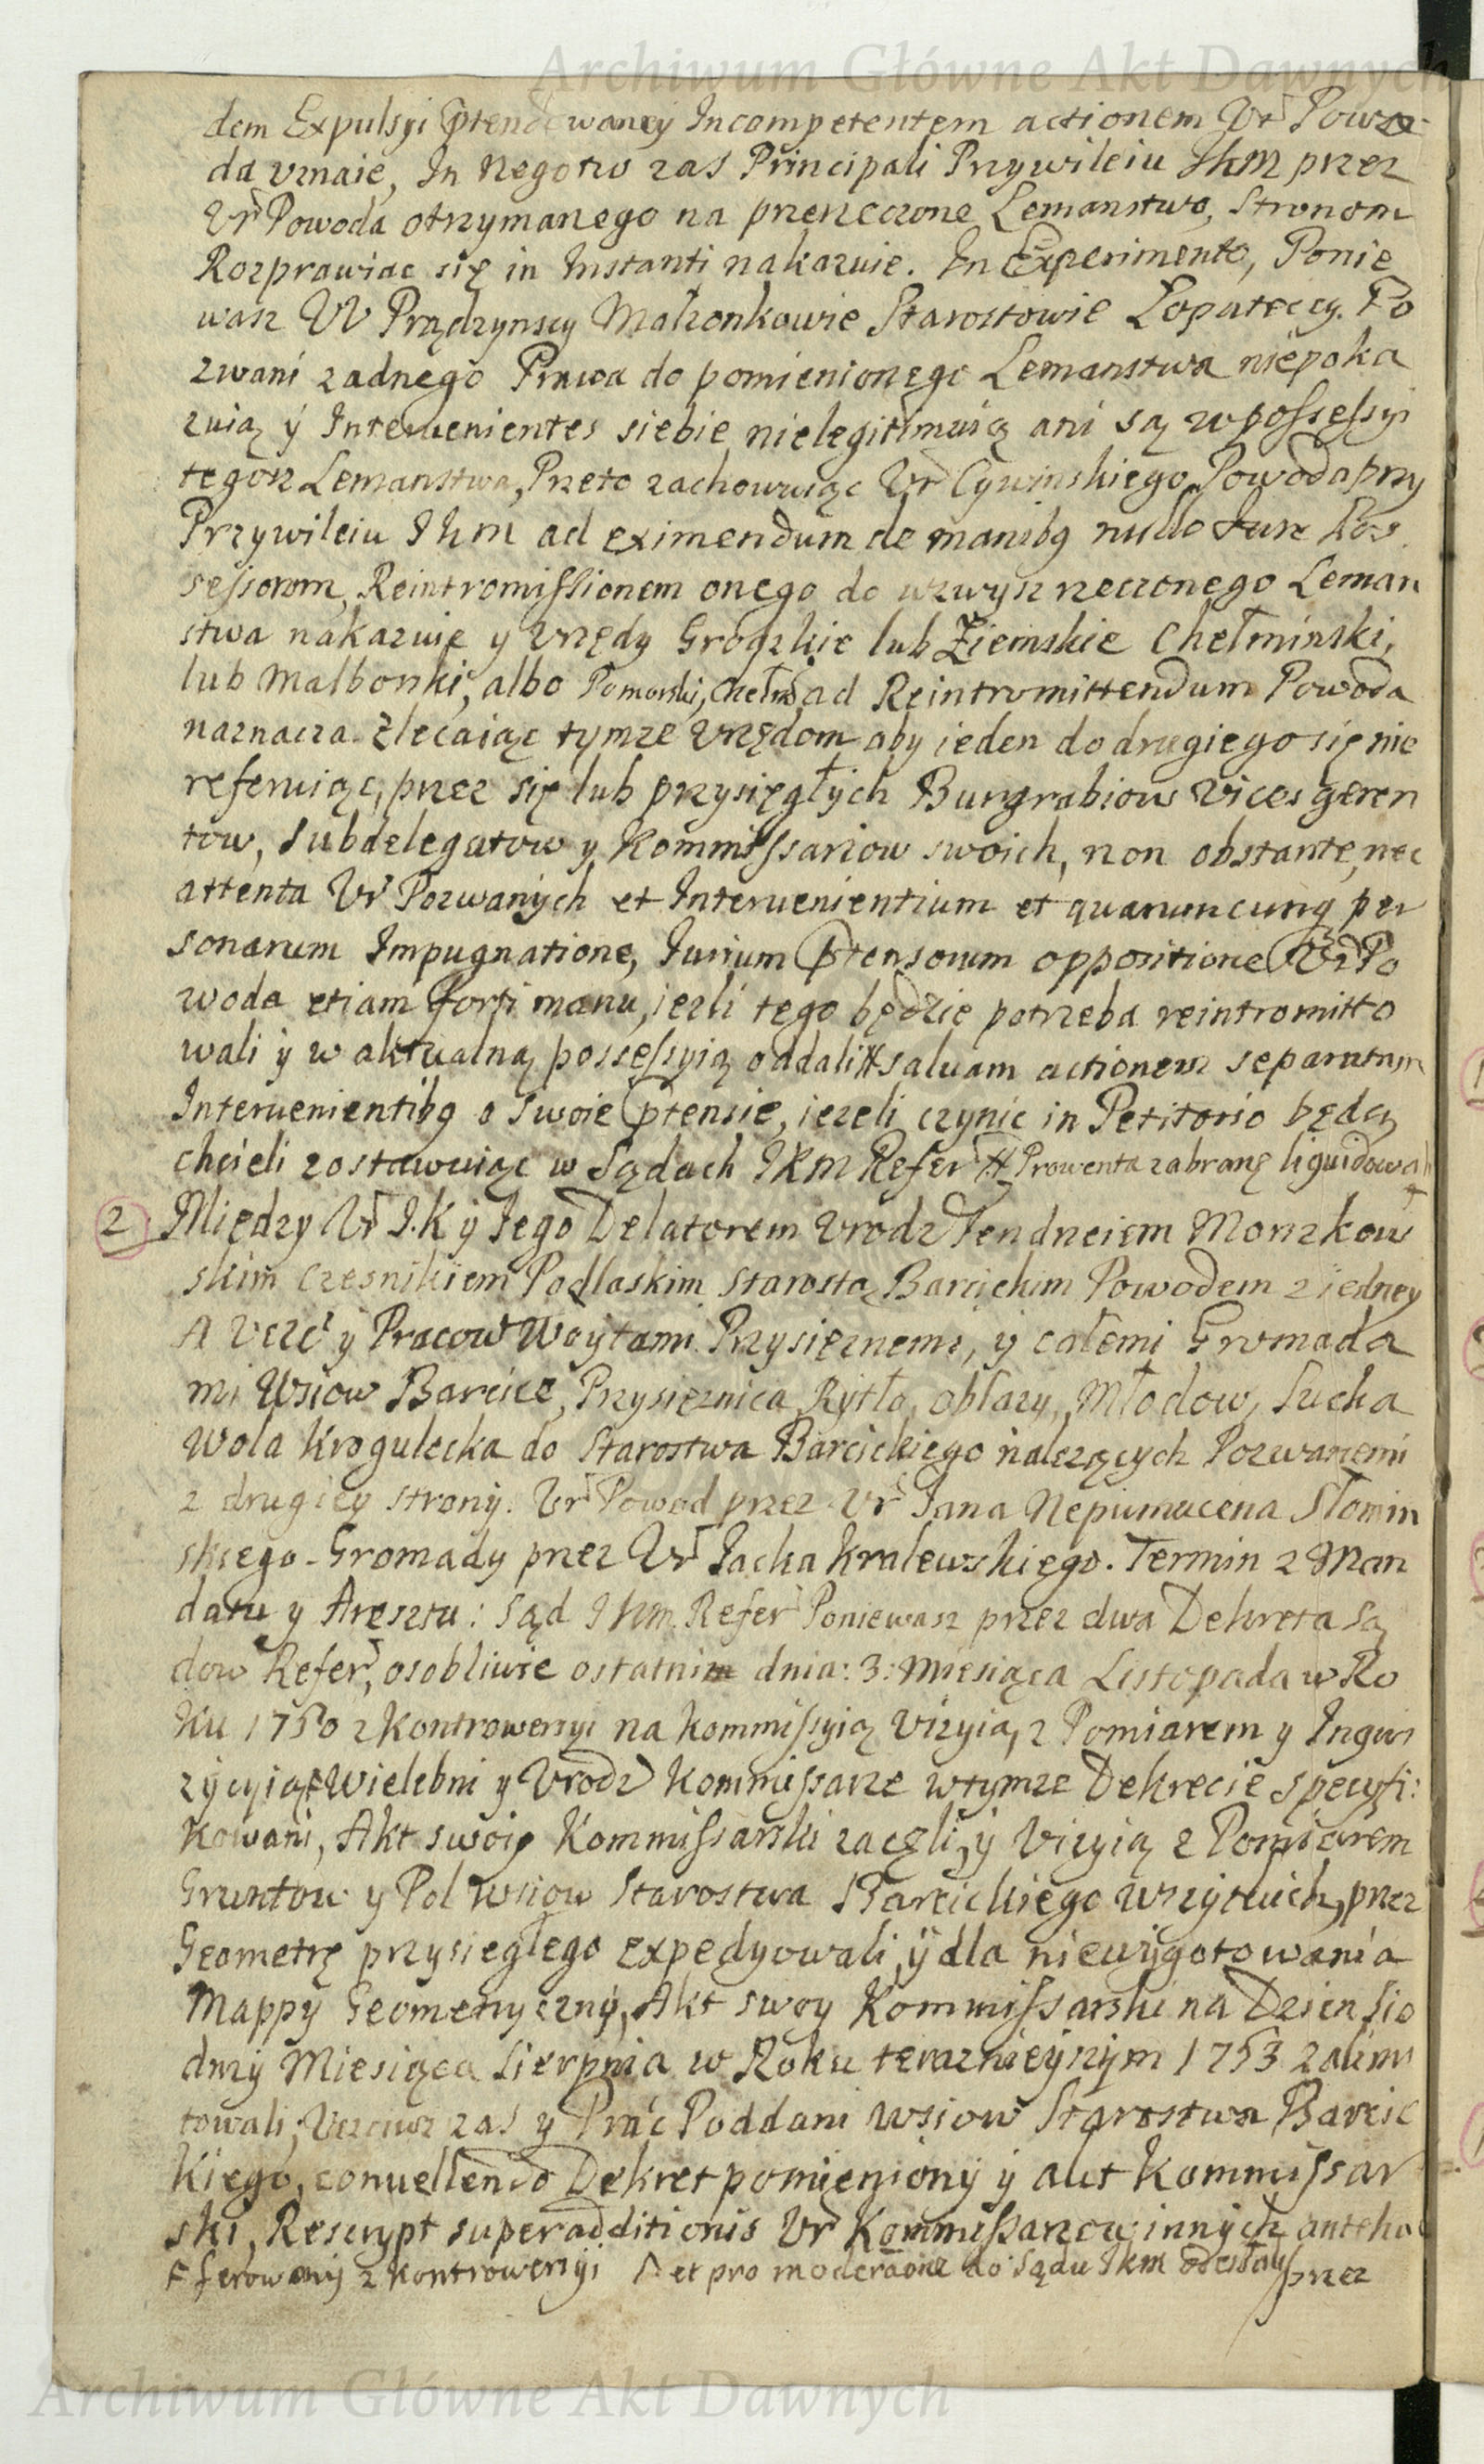 Archiwum Główne Akt Dawnych
dem Expulsyi ptendowaney Incompetentem actionem Ur Powo-
da uznaie, In Negotio zas Principali Przywileiu Jkm przez
Ur Powoda otrzymanego na przerzeczone Lemanstwo, Stronom
Rozprawiac się in Instanti nakazuie. In Experimento, Ponie
wasz UU Prądzynscy Małzonkowie Starostowie Łopateccy. Po
zwani zadnego Prawa do pomienionego Lemanstwa niepoka
zuią ÿ Interuenientes siebie nielegitimuią ani są w possessyi
tegosz Lemanstwa, Przeto zachowuiąc Ur Cywinskiego Powoda przy
Przywileiu Jkm ad eximendum de manibq nullo Jure Pos
sessorom, Reintromissionem onego do wzwysz rzeczonego Leman
stwa nakazuie y Urzędy Grodzkie lub Ziemskie Chełminski,
lub Malborski, albo Pomorski, Chełm ad Reintromittendum Powoda
naznacza. Zlecaiąc tymze Urzędom aby ieden do drugiego się nie
referuiąc, przez się lub przysięgłych Burgrabiow Vicesgeren
tow, Subdelegatow y Kommissarzow swoich, non obstante, nec
attenta Ur Pozwanych et Interuenientium et quaruncunq per
sonarum Impugnatione, Iurium ptensorum oppositione Ur Po
woda etiam forti manu, iezli tego będzie potrzeba reintromitto
wali ÿ w aktualną possessyią oddali # saluam actionem separatam
Interuenientibq o swoie ptensie, iezeli czynic in Petitorio będą
chcieli zostawuiąc w Sądach JKm Refer # Prowenta zabrane liquidowa
2. Między Ur J.K ÿ Jego Delatorem Urodz Jendrzeiem Morzkow
skim Czesnikiem Podlaskim Starostą Barcickim Powodem z iedney
A Uczć ÿ Pracow Woytami Przysięznemi, ÿ całemi Gromada
mi Wsiow Barcice, Przysieznica, Rytło, obłazy, Młodow, Sucha
Wola Krogulecka do Starostwa Barcickiego nalezących Pozwanemi
z drugiey strony. Ur Powod przez Ur Jana Nepumucena Słomin
skiego - Gromady przez Ur Jacka Kralewskiego. Termin z Man
datu y Aresztu: Sąd Jkm. Refer Poniewasz przez dwa Dekreta Są
dow Refer, osobliwie ostatnim dnia: 3: Miesiąca Listopada w Ro
ku 1750 z kontrowersyi na kommissyią Vizyią, z Pomiarem y Inqwi
zycyią F Wielebni y Urodz Kommissarze w tymze Dekrecie specyfi:
kowani, Akt swoie Kommissarski zaczęli, ÿ Vizyią z Pomiarem
Gruntow y Pol Wsiow Starostwa Barcickiego Wszytkich, przez
Geometrę przysiegłego expedyowali, ÿ dla niewygotowania
Mappy Geometryczny, Akt swoy Kommissarski na Dzien Sio
dmy Miesiąca Sierpnia w Roku terazniejszym 1753 zalimi
towali; Uczciwi zas y Prać Poddani Wsiow Starostwa Barcic
kiego, conuellendo Dekret pomieniony ÿ akt Kommissar
ski, Rescrypt superadditionis Ur Kommissarzow innych anteha
F ferowany z kontrowersyi A et pro moderaone do Sądu Jkm odesłały przez
Archiwum Główne Akt Dawnych